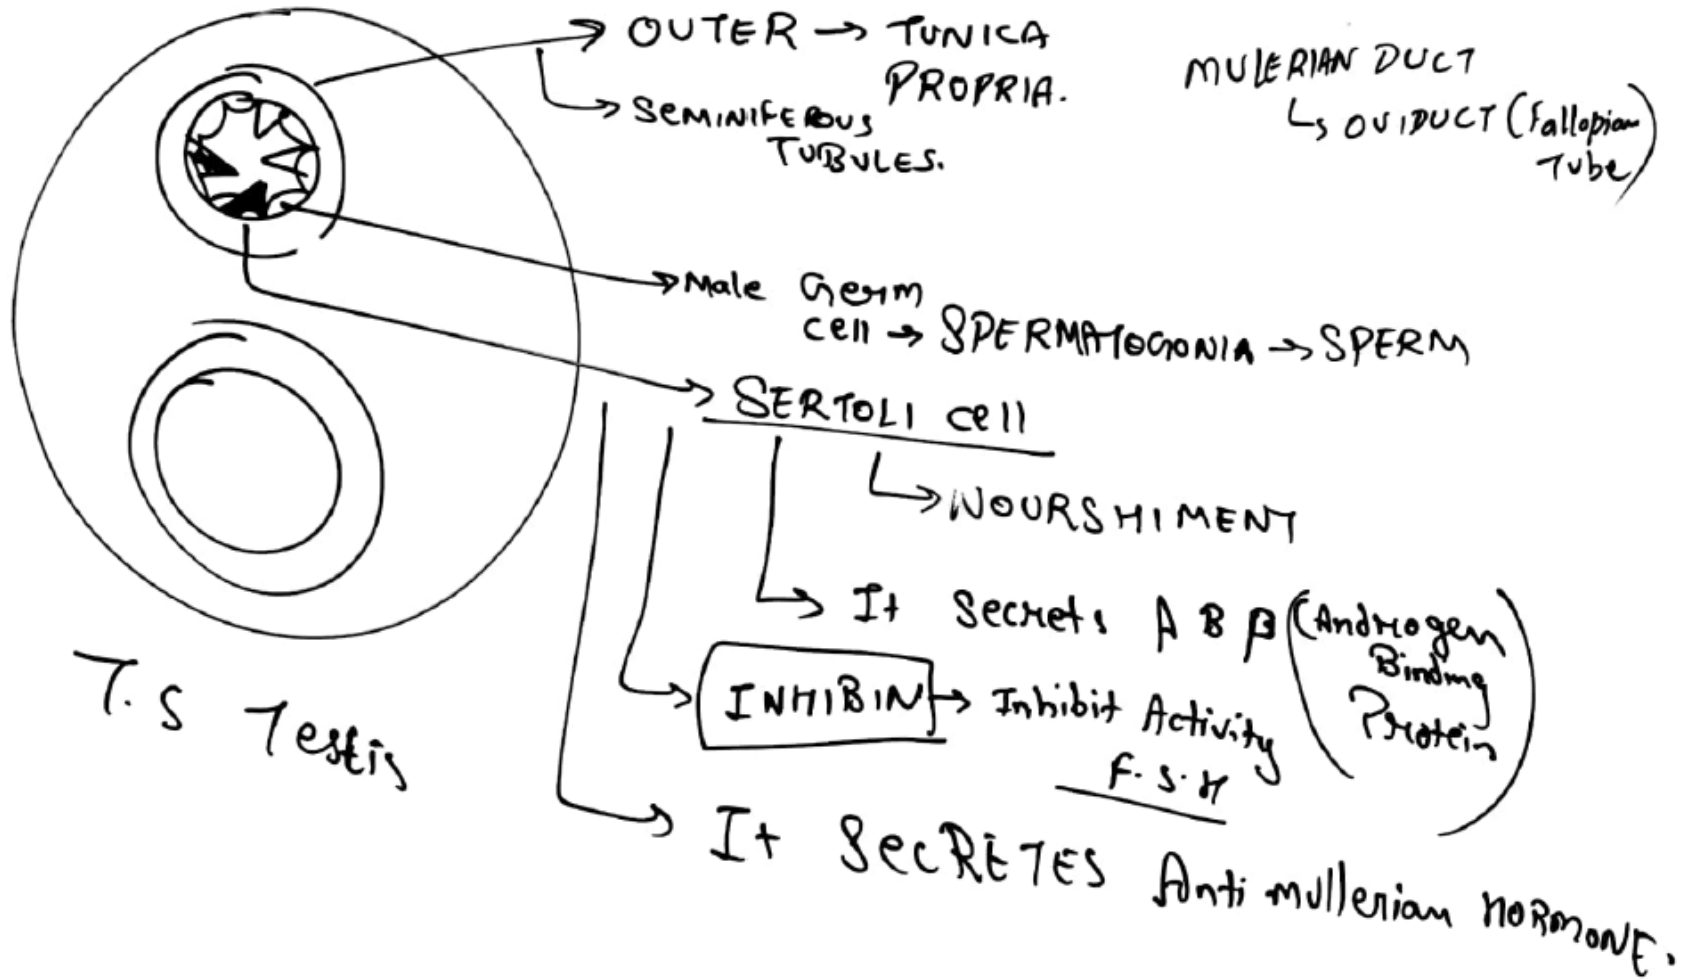 OUTER → TUNICA
PROPRIA.
SEMINIFEROUS
TUBULES.
MULERIAN DUCT
↳ OVIDUCT (Fallopian
Tube)
Male Germ
cell → SPERMATOGONIA → SPERM
SERTOLI cell
NOURSHIMENT
It Secrets ABP (Androgen
Binding
Protein)
INHIBIN → Inhibit Activity
F.S.H
It SECRETES Anti mullerian HORMONE.
T.S Testis